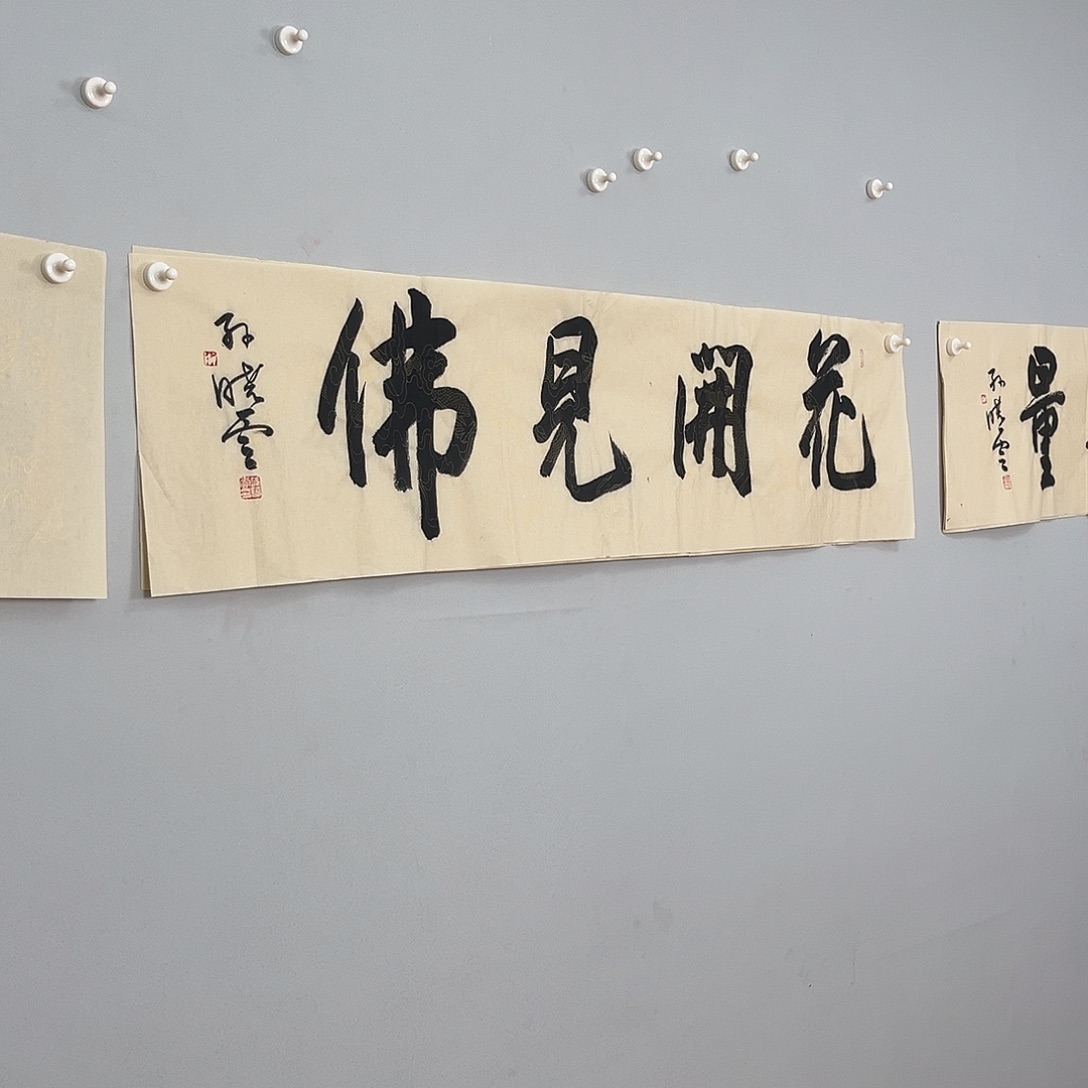 花開見佛
孫曉雲
量
孫曉雲